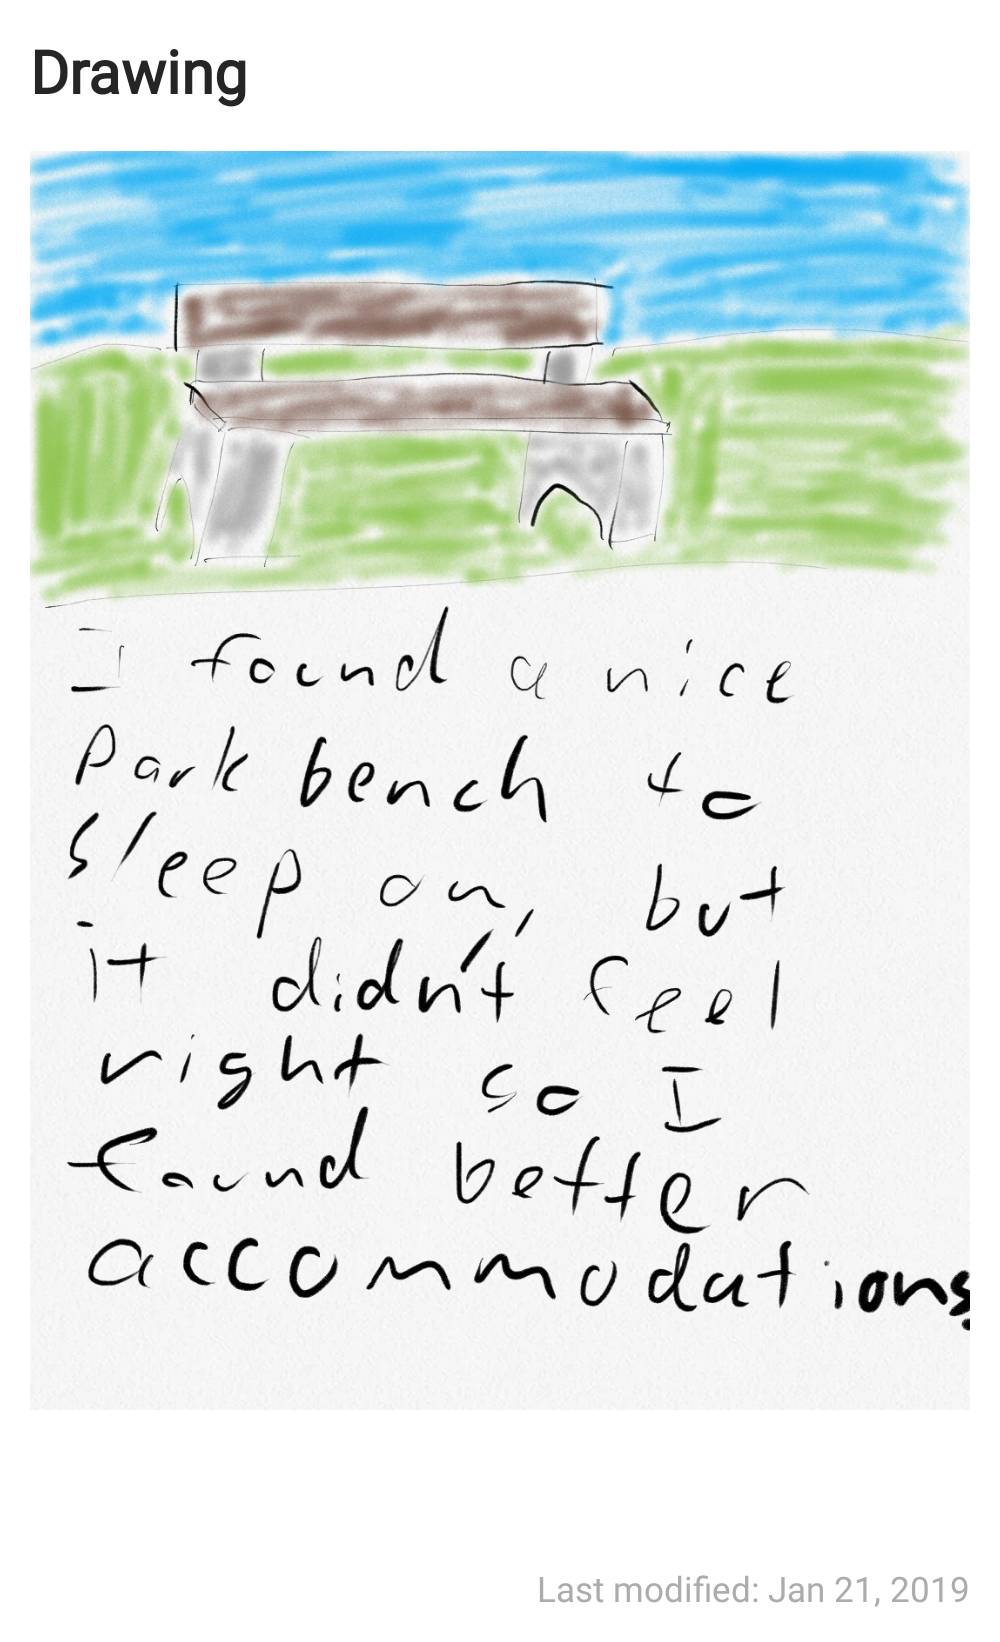 Drawing
I found a nice
Park bench to
sleep on, but
it didn't feel
right so I
found better
accommodations.
Last modified: Jan 21, 2019